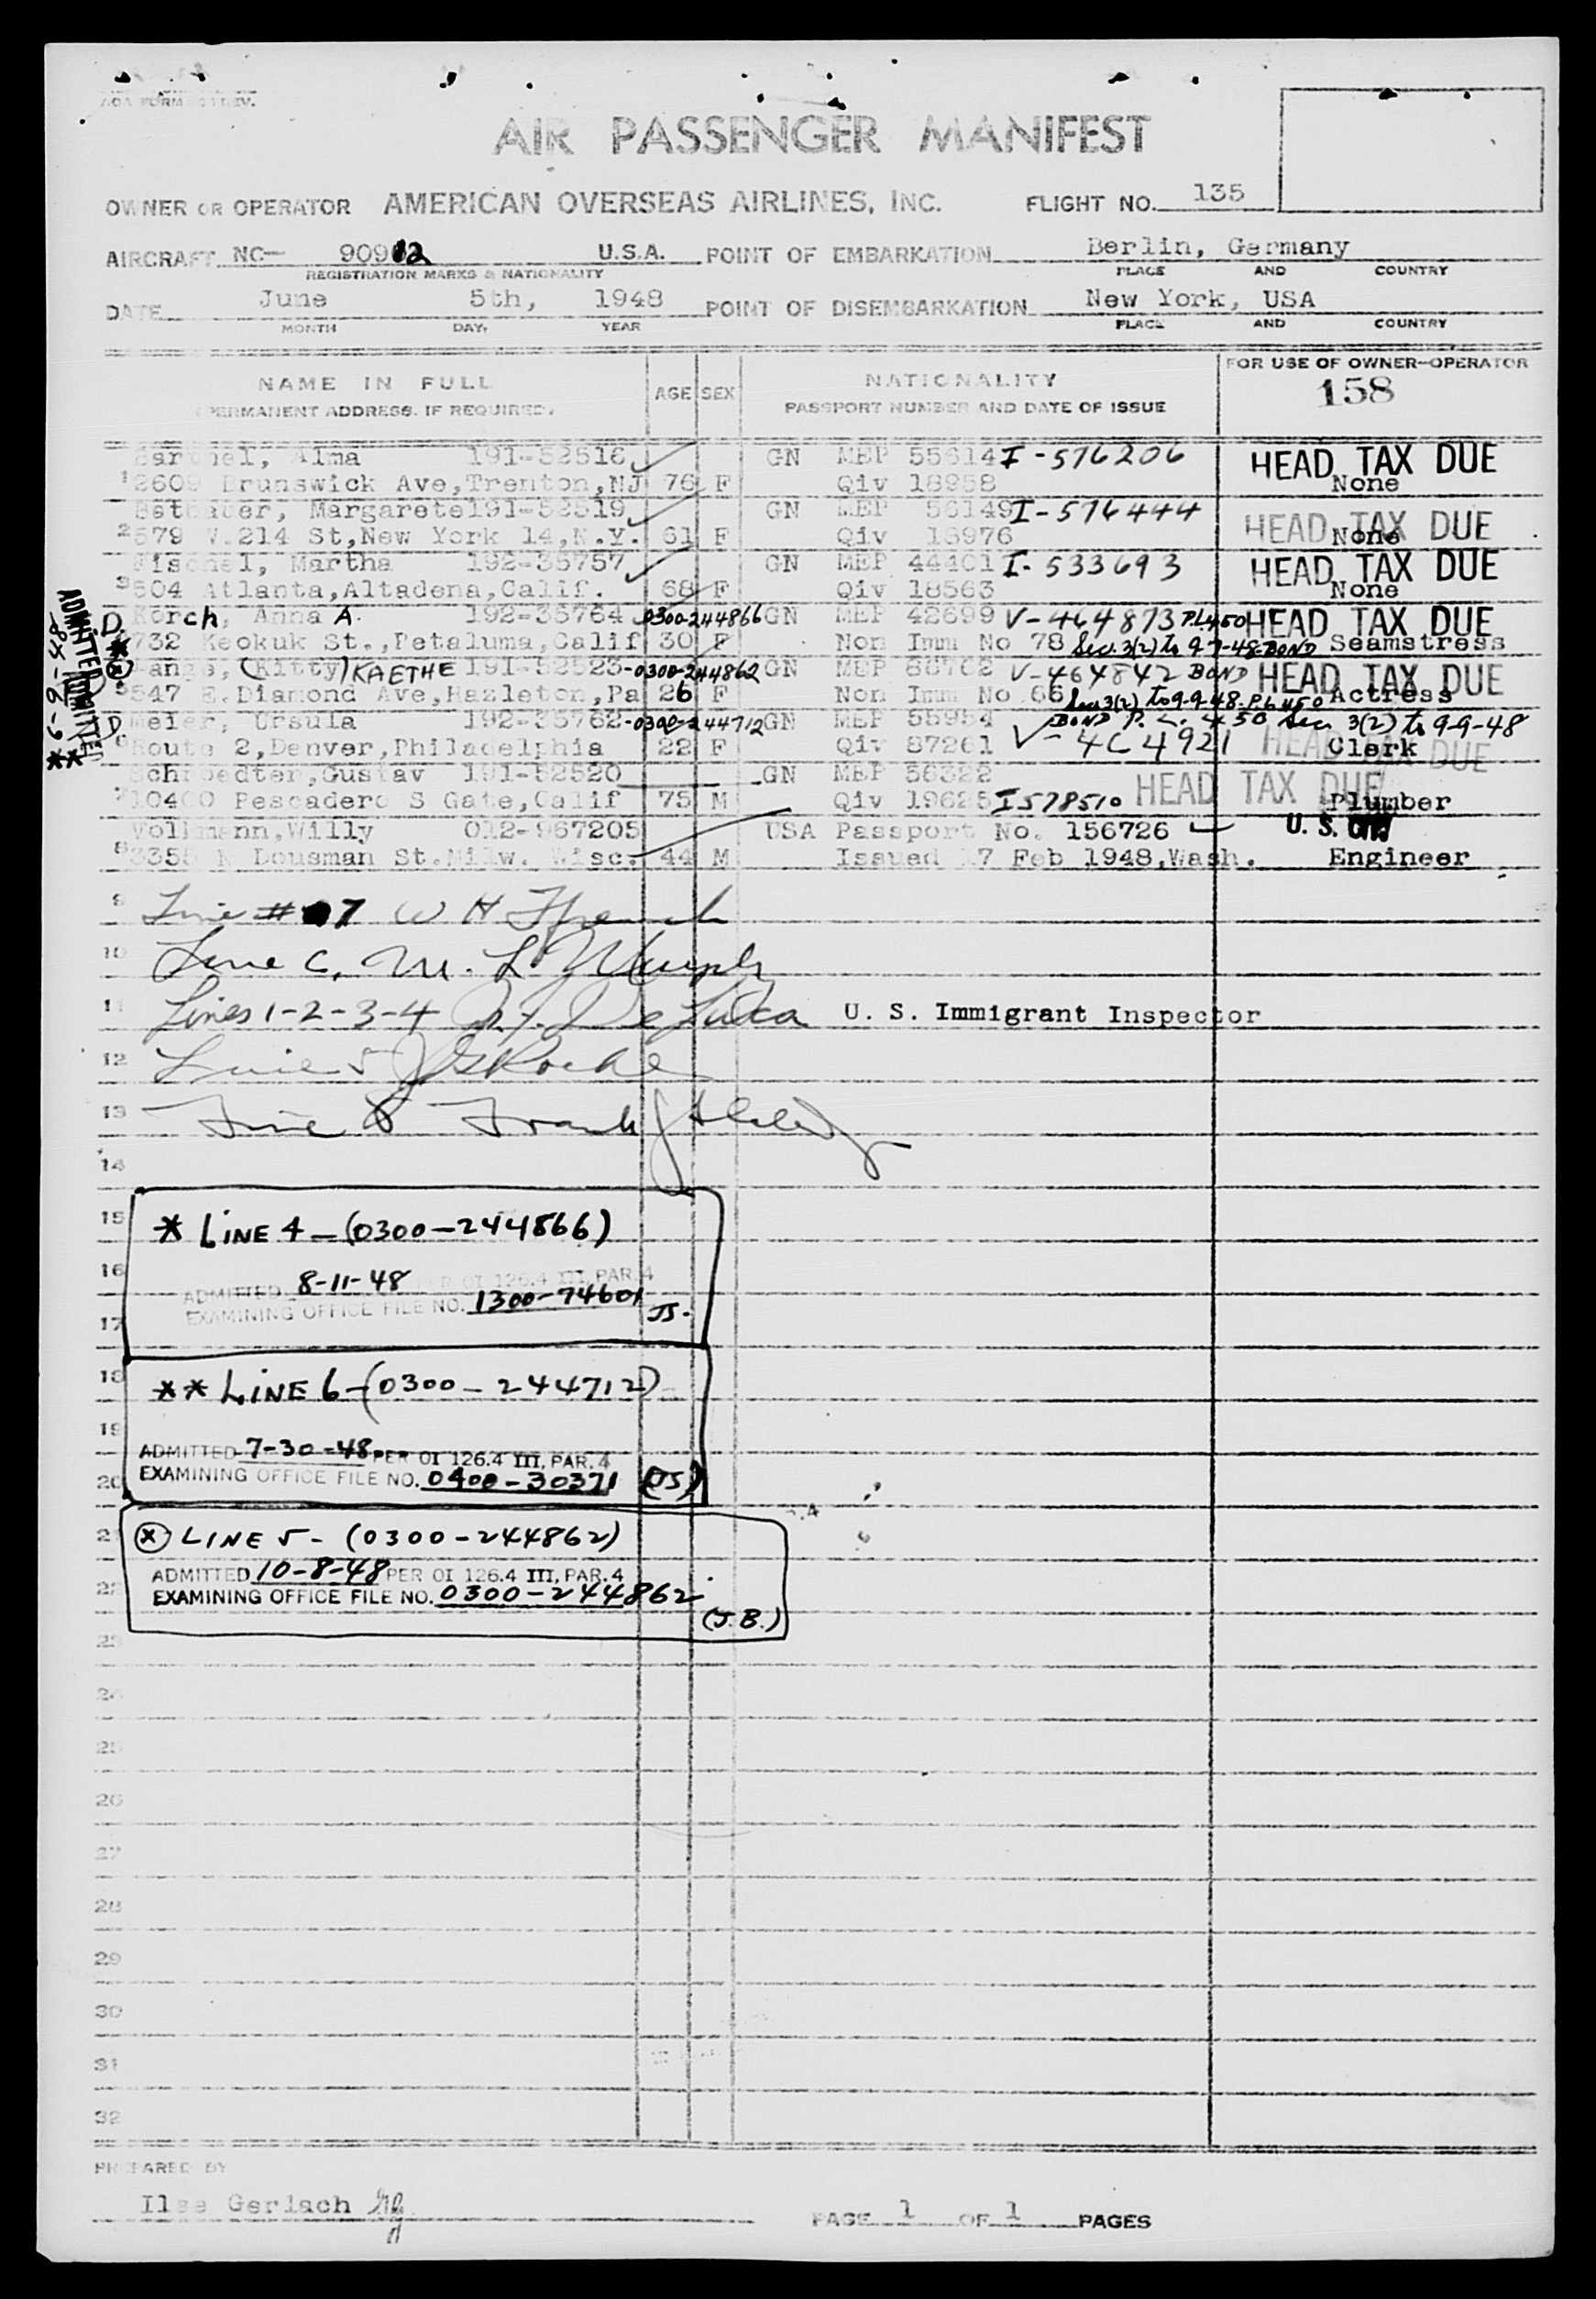 AIR PASSENGER MANIFEST
OWNER OR OPERATOR AMERICAN OVERSEAS AIRLINES, INC. FLIGHT NO. 135
AIRCRAFT NC— 90912 U.S.A. POINT OF EMBARKATION Berlin, Germany
REGISTRATION MARKS & NATIONALITY PLACE AND COUNTRY
DATE June 5th, 1948 POINT OF DISEMBARKATION New York, USA
MONTH DAY, YEAR PLACE AND COUNTRY
NAME IN FULL AGE SEX NATIONALITY FOR USE OF OWNER-OPERATOR
PERMANENT ADDRESS, IF REQUIRED. PASSPORT NUMBER AND DATE OF ISSUE 158
Alma 191-52516 GN MEP 55614 I-576206 HEAD TAX DUE
1 2609 Brunswick Ave,Trenton,NJ 76 F Qiv 18958 None
Margarete 191-52519 GN MEP 56149 I-576444 HEAD TAX DUE
2 579 W.214 St,New York 14,N.Y. 61 F Qiv 18976 None
Martha 192-35757 GN MEP 44401 I-533693 HEAD TAX DUE
3 504 Atlanta,Altadena,Calif. 68 F Qiv 18563 None
D Korch, Anna A. 192-35764 0300-244866 GN MEP 42699 V-464873 P.L 450 HEAD TAX DUE
4 732 Keokuk St.,Petaluma,Calif 30 F Non Imm No 78 Sec. 3(2) to 9-9-48-BOND Seamstress
(Kitty) KAETHE 191-52523-0300-244862 GN MEP V-464842 BOND HEAD TAX DUE
5 547 E.Diamond Ave,Hazleton,Pa 26 F Non Imm No 66 Sec 3(2) to 9-9-48. P.L 450 Actress
D Meier, Ursula 192-35762-0300-244712 GN MEP 55954 BOND P. L. 450 Sec 3(2) to 9-9-48
6 Route 2,Denver,Philadelphia 22 F Qiv 87261 V-464921 HEAD TAX DUE Clerk
Schroedter,Gustav 191-52520 GN MEP 56322 HEAD TAX DUE
7 10400 Pescadero S Gate,Calif 75 M Qiv 19625 I578510 Plumber
Vollmann,Willy 012-967205 USA Passport No. 156726 U. S. Cit.
8 3355 N Dousman St.Milw. Wisc. 44 M Issued 17 Feb 1948,Wash. Engineer
ADMITTED
** ADMITTED 9-9-48
9 Line #7 W H French
10 Line 6, M. L. Murphy
11 Lines 1-2-3-4 De Luca U. S. Immigrant Inspector
12 Line 5 Roche
13 Line 8 Frank J
14
15 * LINE 4 — (0300-244866)
16 ADMITTED 8-11-48 PER OI 126.4 III, PAR. 4
17 EXAMINING OFFICE FILE NO. 1300-74601 JS.
18 ** LINE 6 - (0300-244712)
19 ADMITTED 7-30-48 PER OI 126.4 III, PAR. 4
20 EXAMINING OFFICE FILE NO. 0400-30371 (JS)
21 (x) LINE 5 - (0300-244862)
ADMITTED 10-8-48 PER OI 126.4 III, PAR. 4
22 EXAMINING OFFICE FILE NO. 0300-244862
(J.B.)
23
24
25
26
27
28
29
30
31
32
PREPARED BY
Ilse Gerlach
PAGE 1 OF 1 PAGES